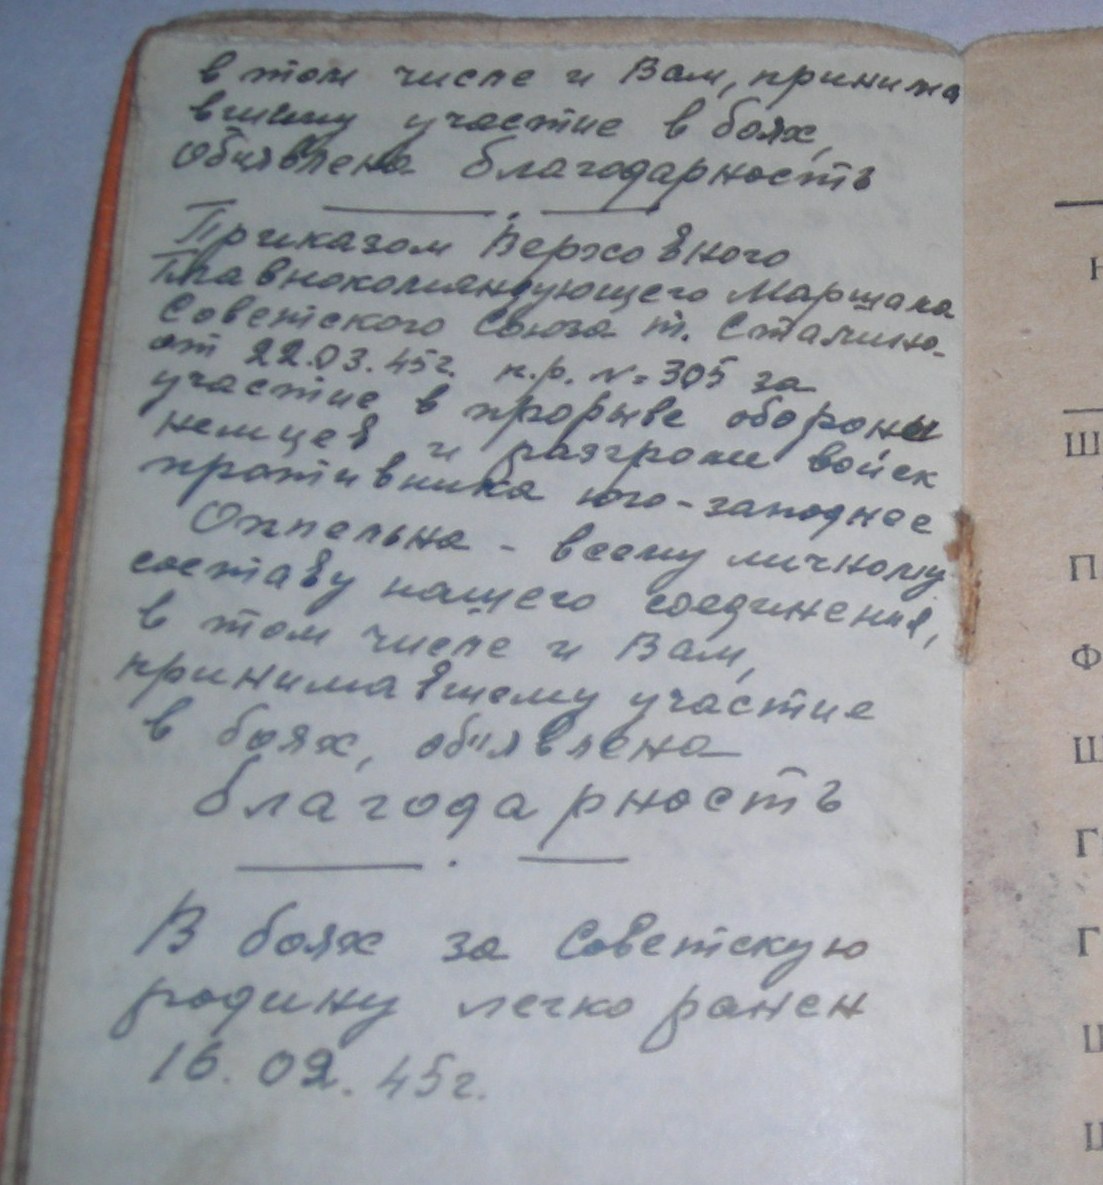 в том числе и Вам, принима
вшему участие в боях,
объявлена благодарность
Приказом Верховного
Главнокомандующего Маршала
Советского Союза т. Сталина
от 22.03.45г. н.р. №305 за
участие в прорыве обороны
немцев и разгроме войск
противника юго-западнее
Оппельна - всему личному
составу нашего соединения,
в том числе и Вам,
принимавшему участие
в боях, объявлена
благодарность
В боях за Советскую
родину легко ранен
16.02.45г.
Ш
П
Ф
Ш
Г